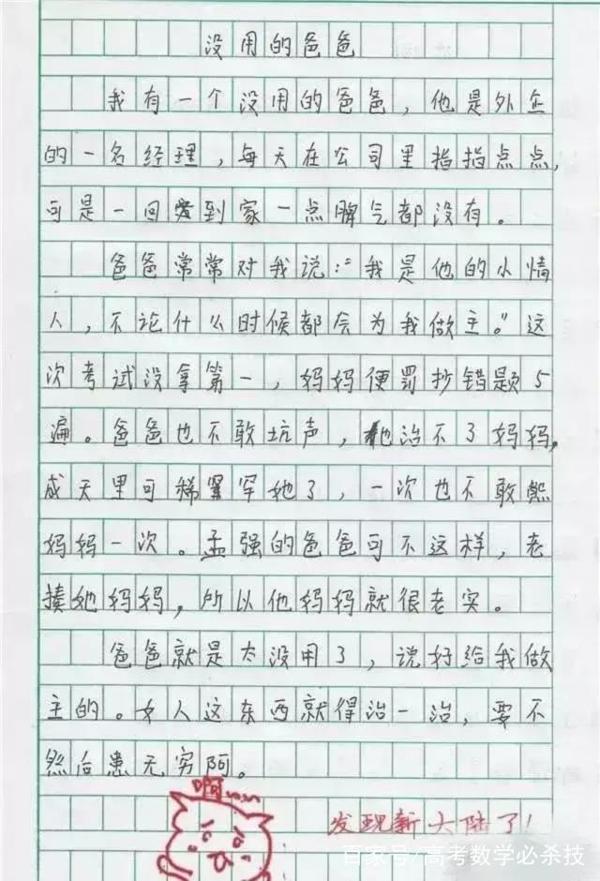 没用的爸爸
我有一个没用的爸爸，他是外企
的一名经理，每天在公司里指指点点，
可是一回到家一点脾气都没有。
爸爸常常对我说：“我是他的小情
人，不论什么时候都会为我做主。”这
次考试没拿第一，妈妈便罚抄错题5
遍。爸爸也不敢坑声，他治不了妈妈，
成天里可稀罕她了，一次也不敢熊
妈妈一次。孟强的爸爸可不这样，老
揍她妈妈，所以他妈妈就很老实。
爸爸就是太没用了，说好给我做
主的。女人这东西就得治一治，要不
然后患无穷阿。
啊
发现新大陆了！
百家号/高考数学必杀技